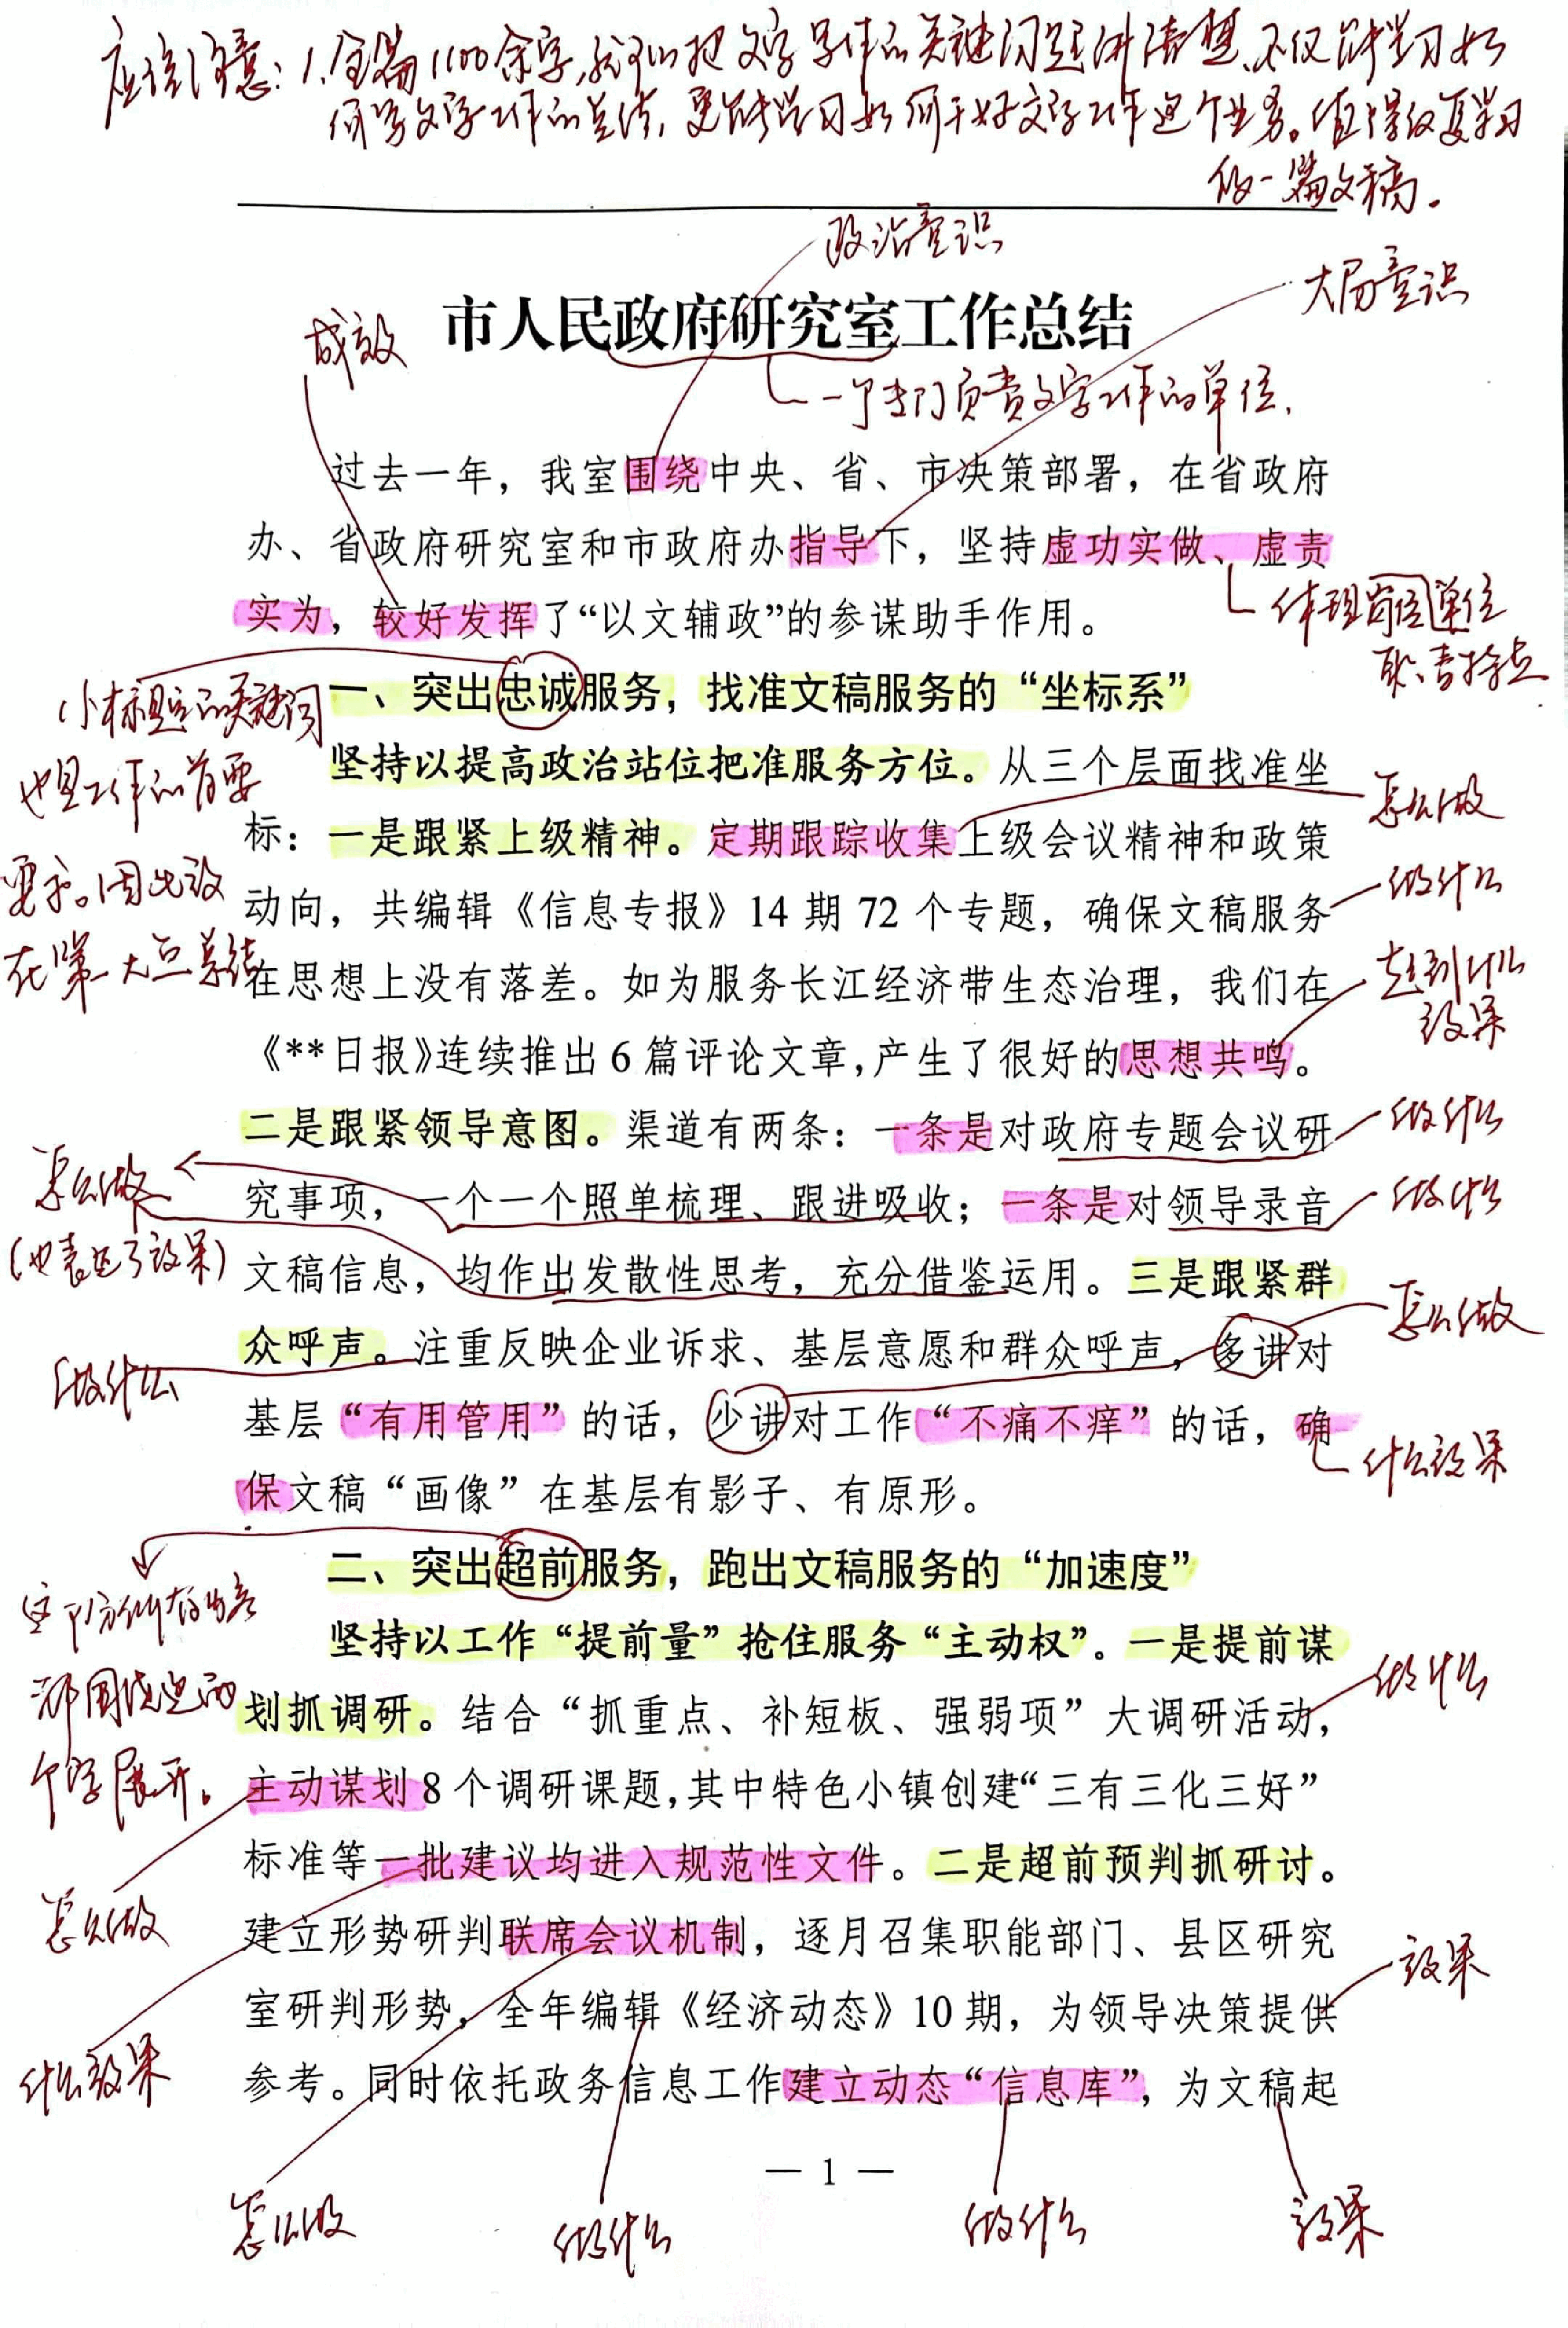 应该注意：1.全篇1100余字，就可以把文字工作的关键问题讲清楚，不仅能学习如
何写文字工作的总结，更能学习如何干好文字工作这个业务。值得反复学习
的一篇文稿。
政治意识
大局意识
成效
市人民政府研究室工作总结
一个专门负责文字工作的单位.
过去一年，我室围绕中央、省、市决策部署，在省政府
办、省政府研究室和市政府办指导下，坚持虚功实做、虚责
实为，较好发挥了“以文辅政”的参谋助手作用。
体现岗位单位
职责特点
一、突出忠诚服务，找准文稿服务的“坐标系”
小标题的关键词
也是工作的首要
要求。因此放
在第一大点总结
坚持以提高政治站位把准服务方位。从三个层面找准坐
怎么做
标：一是跟紧上级精神。定期跟踪收集上级会议精神和政策
做什么
动向，共编辑《信息专报》14 期 72 个专题，确保文稿服务
起到什么
效果
在思想上没有落差。如为服务长江经济带生态治理，我们在
《**日报》连续推出 6 篇评论文章，产生了很好的思想共鸣。
二是跟紧领导意图。渠道有两条：一条是对政府专题会议研
做什么
怎么做
(也表达了效果)
究事项，一个一个照单梳理、跟进吸收；一条是对领导录音
做什么
文稿信息，均作出发散性思考，充分借鉴运用。三是跟紧群
怎么做
众呼声。注重反映企业诉求、基层意愿和群众呼声，多讲对
做什么
基层“有用管用”的话，少讲对工作“不痛不痒”的话，确
什么效果
保文稿“画像”在基层有影子、有原形。
二、突出超前服务，跑出文稿服务的“加速度”
都围绕这两
个字展开。
坚持以工作“提前量”抢住服务“主动权”。一是提前谋
做什么
划抓调研。结合“抓重点、补短板、强弱项”大调研活动，
主动谋划 8 个调研课题，其中特色小镇创建“三有三化三好”
怎么做
标准等一批建议均进入规范性文件。二是超前预判抓研讨。
什么效果
建立形势研判联席会议机制，逐月召集职能部门、县区研究
效果
室研判形势，全年编辑《经济动态》10 期，为领导决策提供
参考。同时依托政务信息工作建立动态“信息库”，为文稿起
— 1 —
怎么做
做什么
做什么
效果